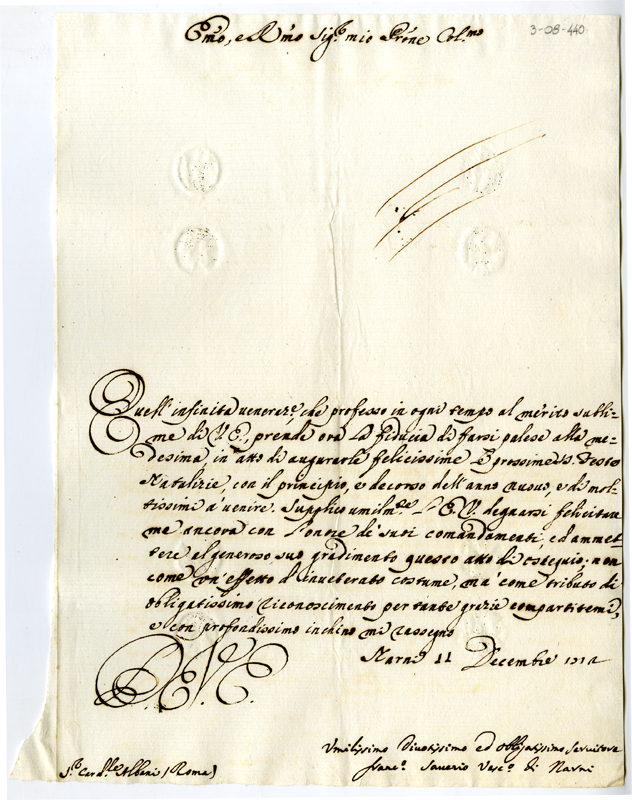 3-08-440
Em̃o, e Rm̃o Sig.r mio Prõne Col.mo
Quell' infinita veneraz.e, che professo in ogni tempo al merito subli-
me di V. E., prende ora la fiducia di farsi palese alla me-
desima in atto di augurarle felicissime le prossime SS. Feste
Natalizie, con il principio, e decorso dell' anno nuovo, e di mol-
tissimi à venire. Supplico umilm.te l' E. V. degnarsi felicitare
me ancora con l' onore de' suoi comandamenti, ed ammet-
tere al generoso suo gradimento questo atto di ossequio; non
come un' effetto d' inveterato costume, mà come tributo di
obligatissimo riconoscimento per tante grazie compartitemi,
e con profondissimo inchino mi rassegno
Narni 11 Decembre
D. V. E.
Umilissimo Divotissimo ed obligatissimo servitore
Franc.o Saverio Vesc.o di Narni
S.r Card.le Albani (Roma)